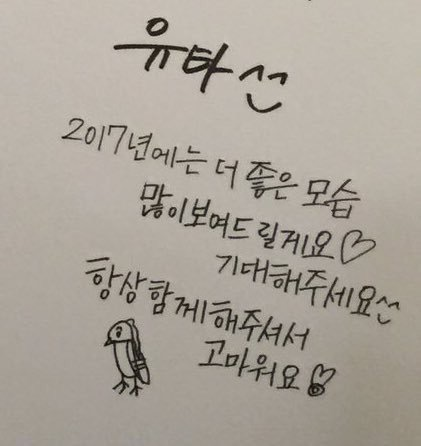 유타 ^^
2017년에는 더 좋은 모습
많이보여드릴게요♡
기대해주세요^^
항상함께해주셔서
고마워요!